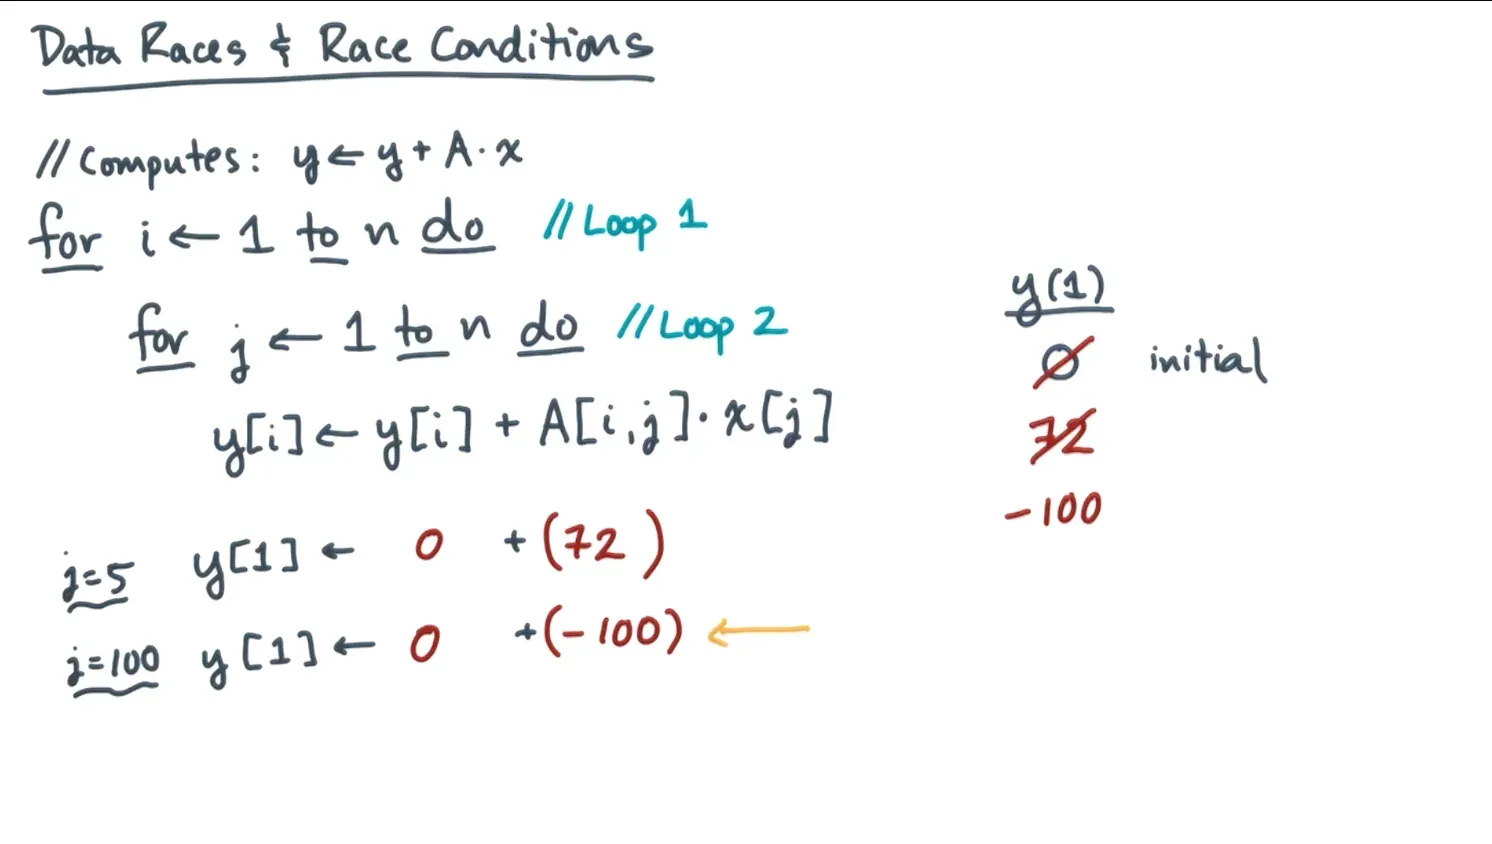 Data Races & Race Conditions
// Computes: y ← y + A · x
for i ← 1 to n do // Loop 1
for j ← 1 to n do // Loop 2
y[i] ← y[i] + A[i,j] · x[j]
j=5 y[1] ← 0 + (72)
j=100 y[1] ← 0 + (-100) ←
y(1)
0 initial
72
-100